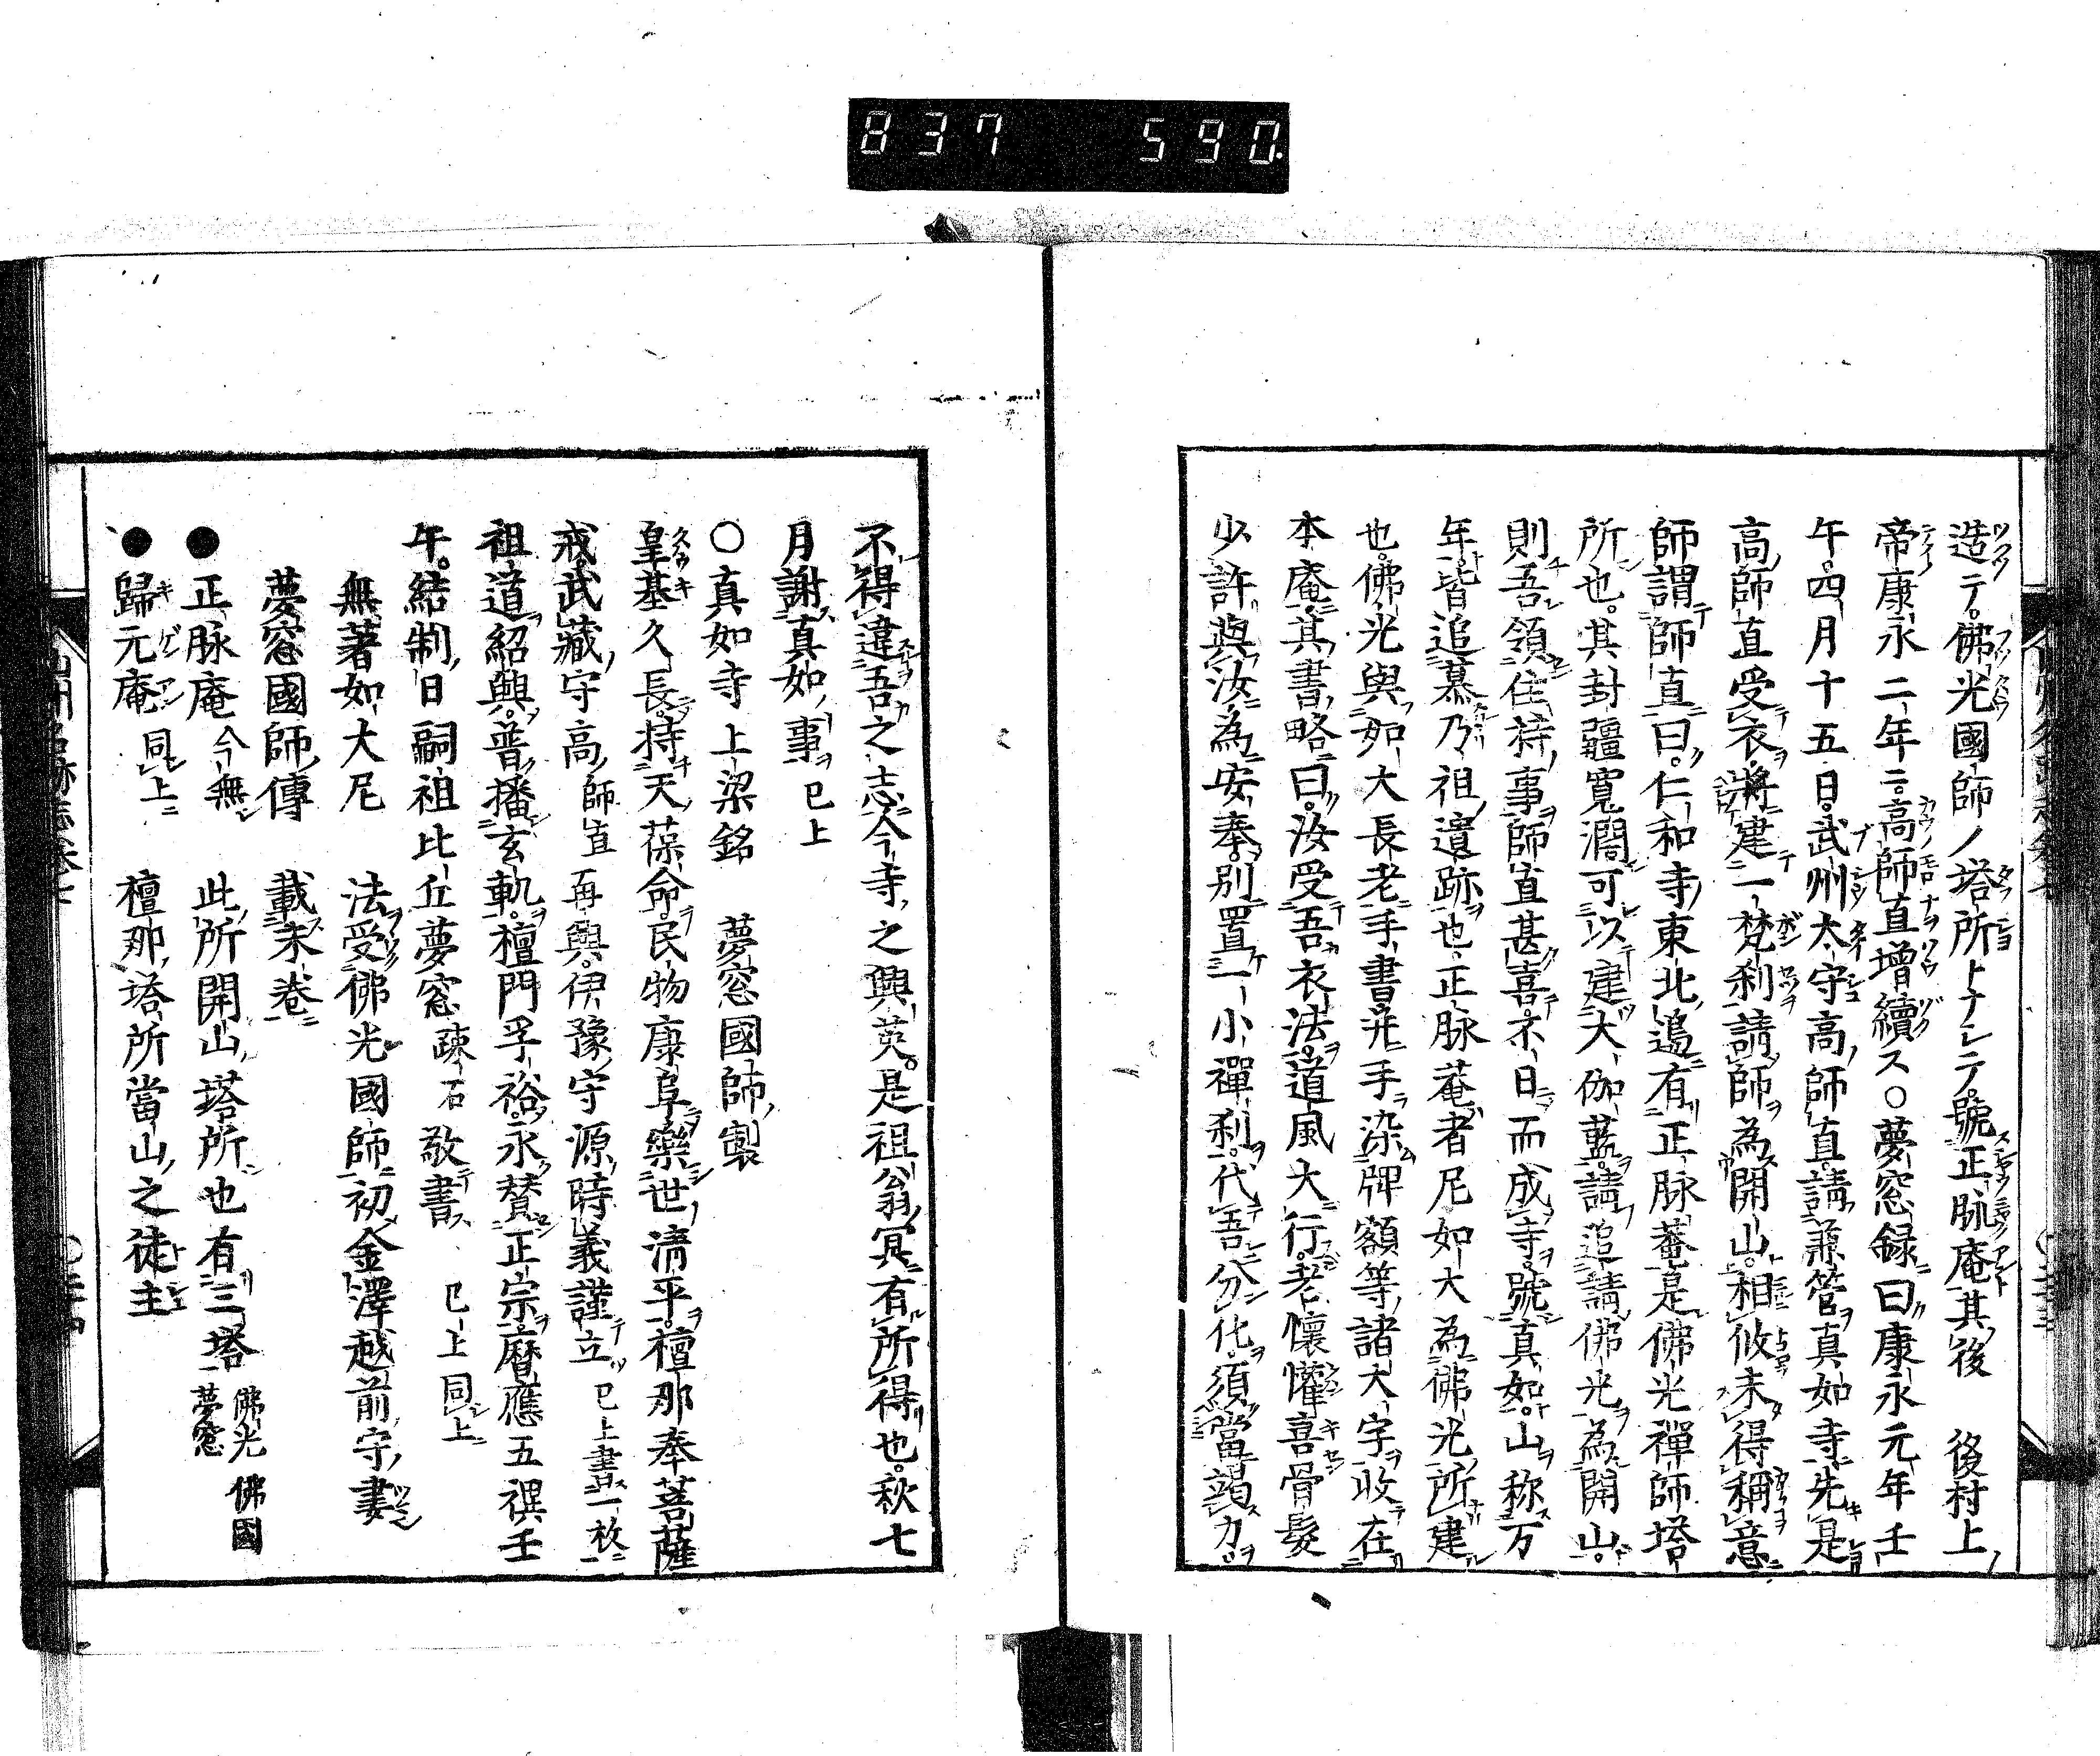 837 590.
造テ佛光國師ノ塔所トナシテ。號正脉庵其後 後村上
帝康永二年ニ。高師直增續ス○夢窓録曰康永元年壬
午。四月十五日。武州太守高師直。請兼管真如寺先是
高師直受衣。將建一梵刹請師為開山。相攸未得稱意
師謂師直曰。仁和寺東北。有正脉菴是佛光禪師塔
所也。其封疆寛濶可以建大伽藍。請追請佛光為開山。
則吾領住持事師直甚喜。不日而成寺。號真如。山称万
年。皆追慕乃祖遺跡也。正脉菴者尼如大為佛光所建
也。佛光與如大長老手書并手染牌額等諸大字收在
本庵。其書略曰。汝受吾衣法。道風大行。老懷懽喜骨髮
少許與汝。為安奉。別置一小禪刹。代吾分化。須當竭力。
不得違吾之志今寺之興莫。是祖翁冥有所得也。秋七
月謝真如事 已上
○真如寺上梁銘 夢窓國師製
皇基久長。持天葆命。民物康阜。樂世清平。檀那奉菩薩
戒。武藏守高師直再興。伊豫守源時義謹立 已上書一枚
祖道紹興。普播玄軌。檀門孚裕。永賛正宗。暦應五禩壬
午。結制日嗣祖比丘夢窓疎石敬書 已上同上
無著如大尼 法受佛光國師初金澤越前守妻
夢窓國師傳 載末卷
●正脉庵今無 此所開山塔所也有三塔 佛光 佛國 夢窓
●歸元庵同上 檀那塔所當山之徒主